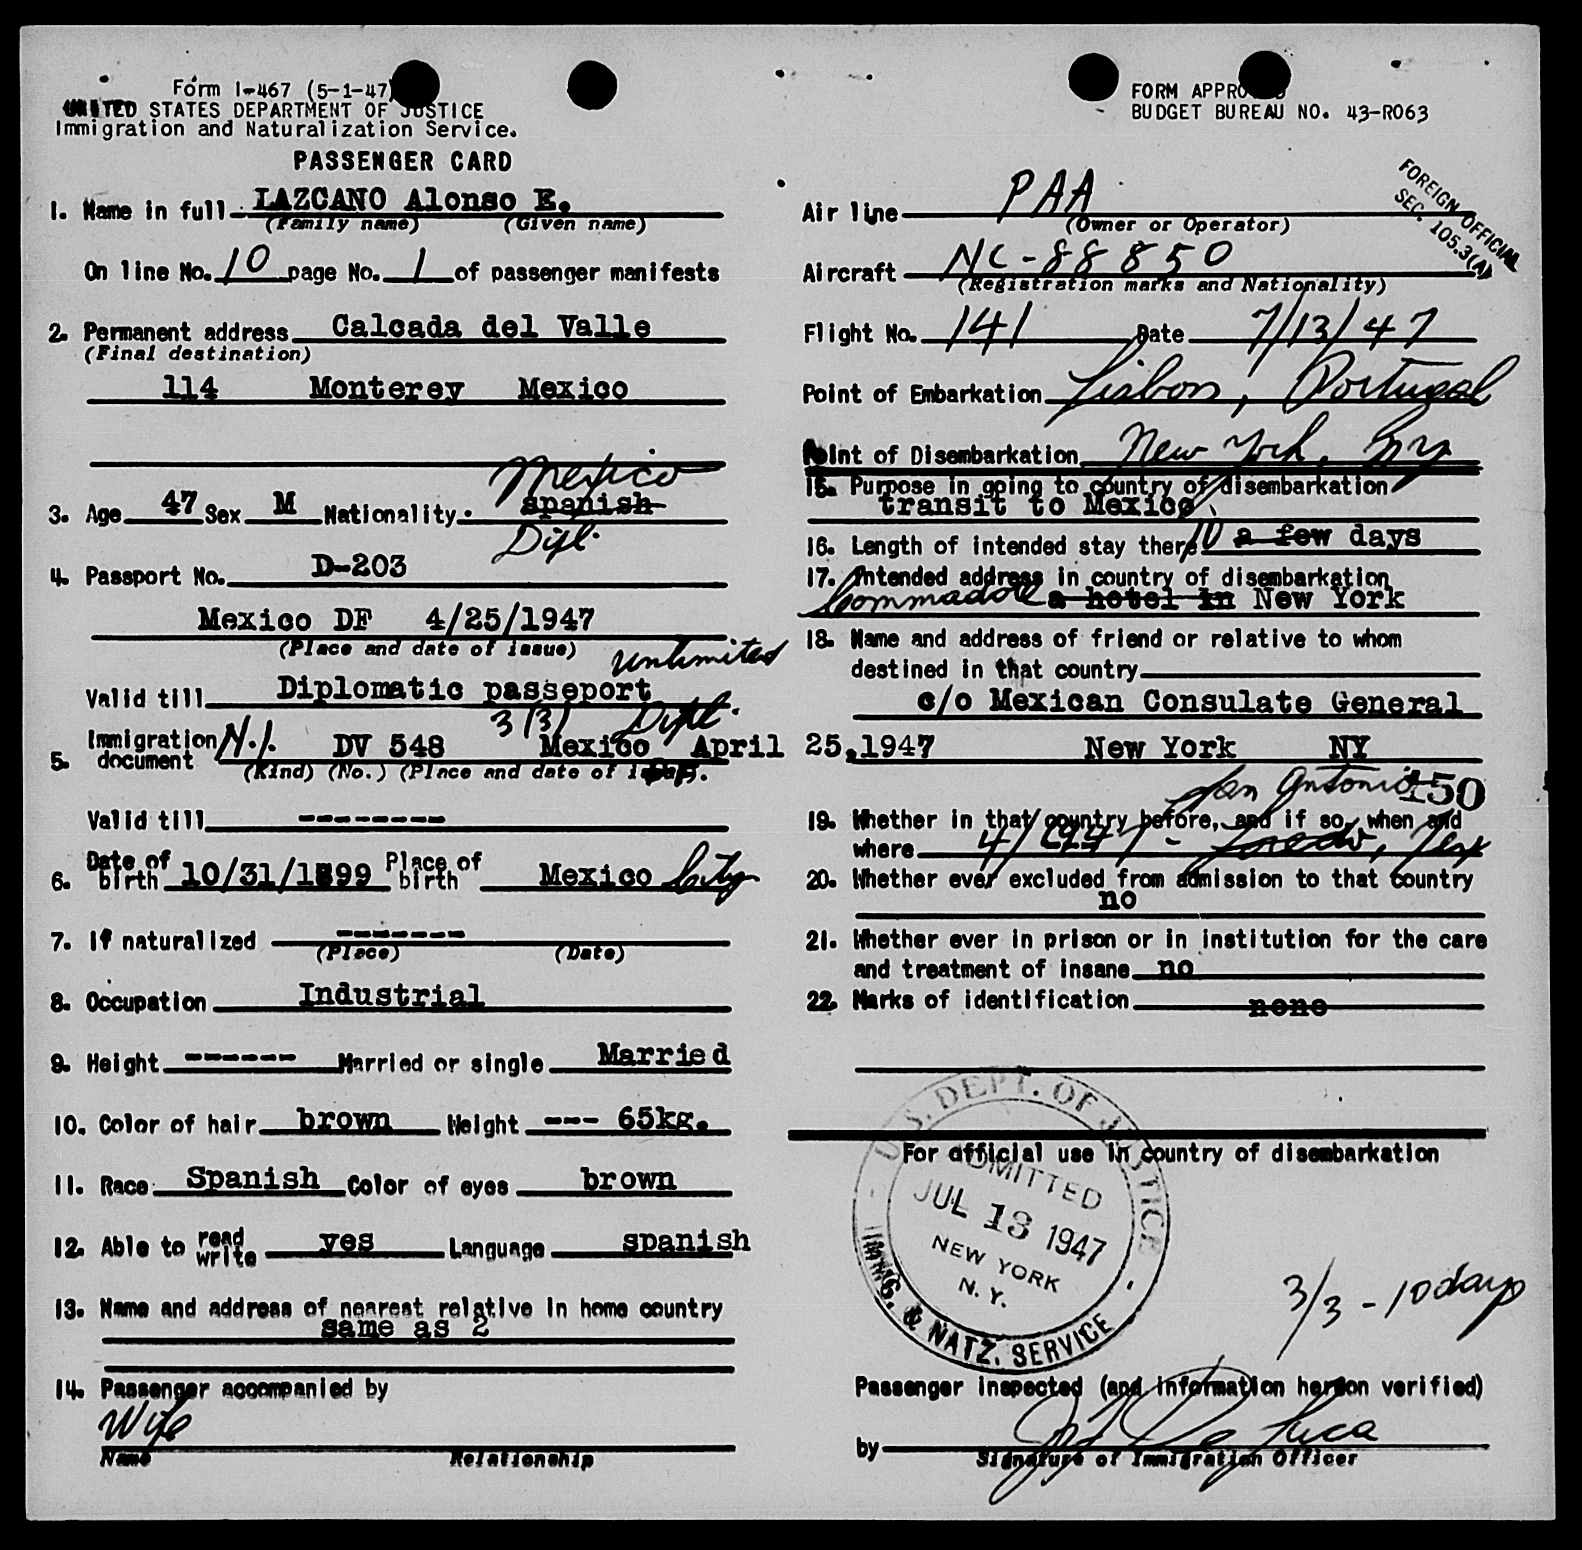 Form I-467 (5-1-47)
UNITED STATES DEPARTMENT OF JUSTICE
Immigration and Naturalization Service.
PASSENGER CARD
1. Name in full LAZCANO Alonso E.
(Family name) (Given name)
On line No. 10 page No. 1 of passenger manifests
2. Permanent address Calcada del Valle
(Final destination)
114 Monterey Mexico
Mexico
3. Age 47 Sex M Nationality spanish
Dipl.
4. Passport No. D-203
Mexico DF 4/25/1947
(Place and date of issue)
unlimited
Valid till Diplomatic passeport
3/3/ Dipl.
5. Immigration document N.I. DV 548 Mexico April 25,1947
(Kind) (No.) (Place and date of
Valid till --------
6. Date of birth 10/31/1899 Place of birth Mexico City
7. If naturalized -------
(Place) (Date)
8. Occupation Industrial
9. Height ------ Married or single Married
10. Color of hair brown Weight --- 65kg.
11. Race Spanish Color of eyes brown
12. Able to read write yes Language spanish
13. Name and address of nearest relative in home country
same as 2
14. Passenger accompanied by
Wife
Name Relationship
FORM APPROVED
BUDGET BUREAU NO. 43-R063
FOREIGN OFFICIAL
SEC. 105.3(A)
Air line PAA
(Owner or Operator)
Aircraft NC-88850
(Registration marks and Nationality)
Flight No. 141 Date 7/13/47
Point of Embarkation Lisbon, Portugal
Point of Disembarkation New York, NY
15. Purpose in going to country of disembarkation
transit to Mexico
16. Length of intended stay there 10 a few days
17. Intended address in country of disembarkation
Commadore a hotel in New York
18. Name and address of friend or relative to whom
destined in that country
c/o Mexican Consulate General
New York NY
San Antonio 150
19. Whether in that country before, and if so, when and
where 4/1947 - Laredo, Tex
20. Whether ever excluded from admission to that country
no
21. Whether ever in prison or in institution for the care
and treatment of insane no
22. Marks of identification none
For official use in country of disembarkation
U.S. DEPT. OF JUSTICE
ADMITTED
JUL 13 1947
NEW YORK
N. Y.
IMMG. & NATZ. SERVICE
3/3 - 10 days
Passenger inspected (and information hereon verified)
by
Signature of Immigration Officer